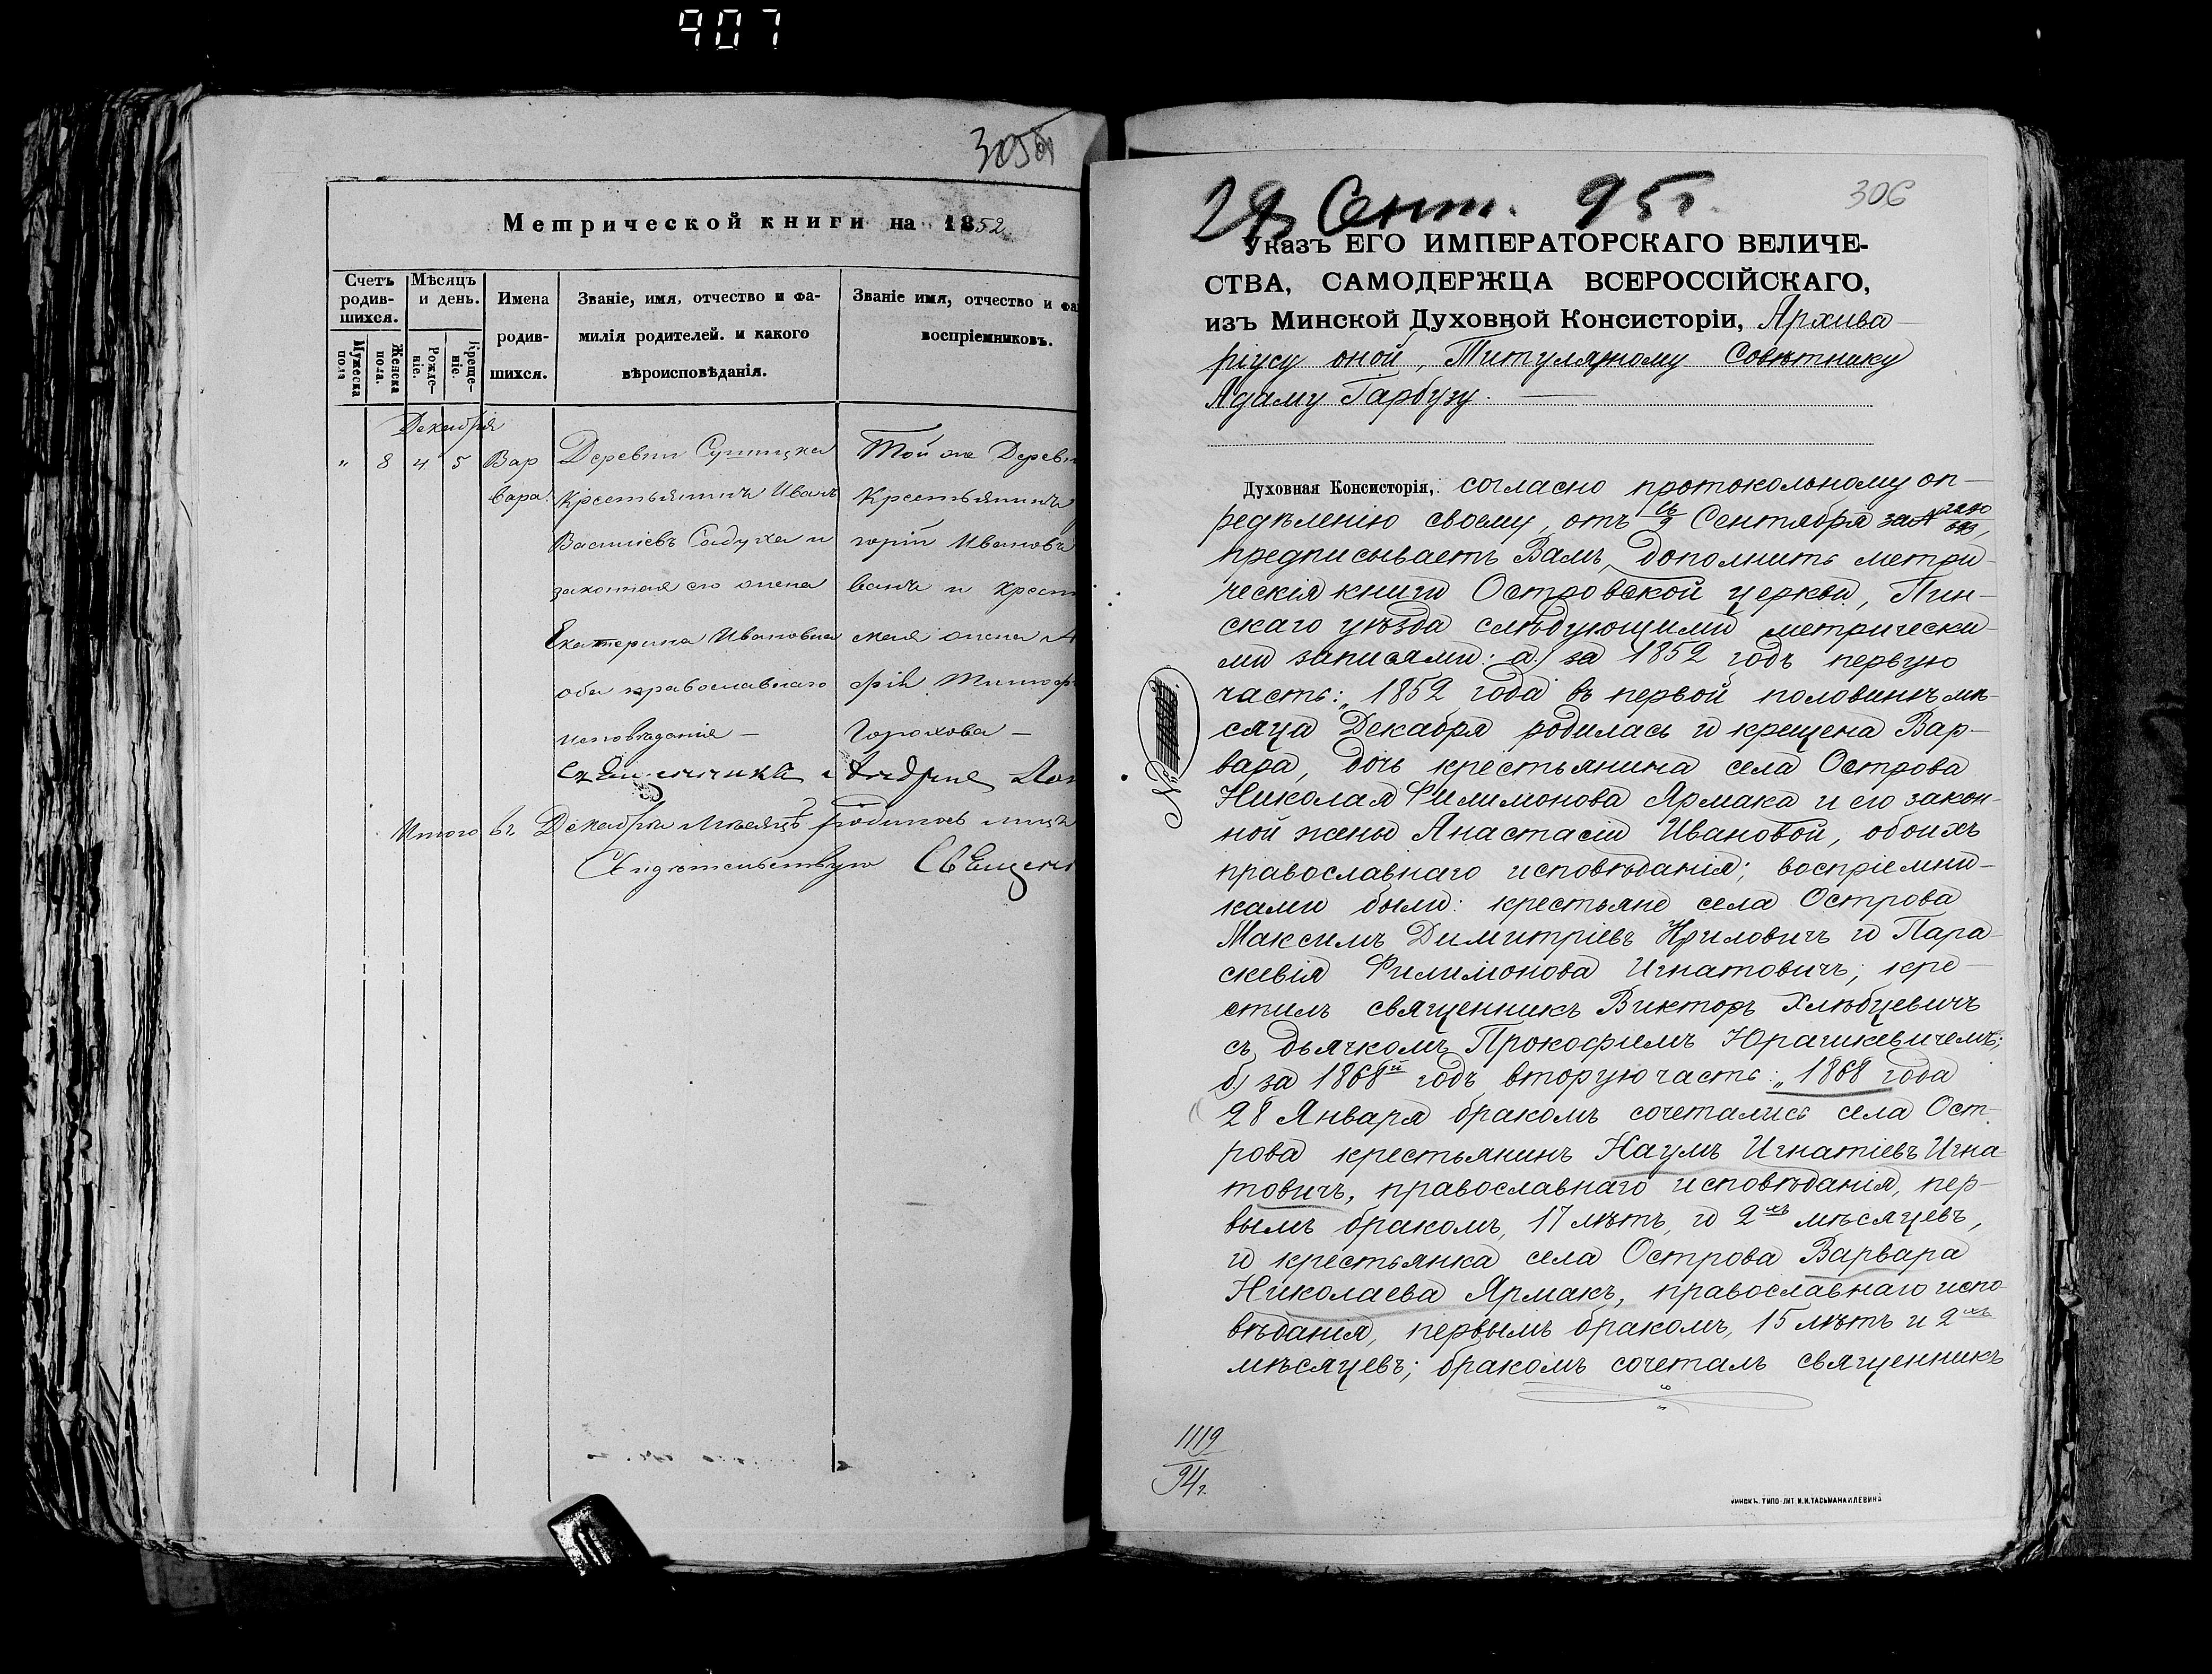 907
305об
Метрической книги на 1852
Счетъ родив-шихся.
Мужеска пола
Женска пола.
Мѣсяцъ и день.
Рожде-ніе.
Креще-ніе.
Имена родив-шихся.
Званіе, имя, отчество и фа-
милія родителей. и какого
вѣроисповѣданія.
Званіе имя, отчество и фа
воспріемниковъ.
Декабрія
" 8 4 5 Вар
вара.
Деревни
Крестьянинъ Иванъ
Василіевъ и
законная его жена
Екатерина Ивановна
оба православнаго
исповѣданія —
Той же Деревн
Крестьянинъ
горій Ивановъ
и Крест
жена А
фія Тимоф
Горохова —
Итого въ Декабрѣ мѣсяцѣ родилось
Свидѣтельствую Священ
29 Сент. 95 г.
306
Указъ ЕГО ИМПЕРАТОРСКАГО ВЕЛИЧЕ-
СТВА, САМОДЕРЖЦА ВСЕРОССІЙСКАГО,
изъ Минской Духовной Консисторіи, Архива-
ріусу оной, Титулярному Совѣтнику
Адаму Гарбузу.
Духовная Консисторія, согласно протокольному оп-
редѣленію своему, отъ Сентября за №
предписываетъ Вамъ, дополнить метри-
ческія книги Островской церкви, Пин-
скаго уѣзда слѣдующими метрически-
ми записями: а) за 1852 годъ первую
часть: „1852 года въ первой половинѣ мѣ-
сяца Декабря родилась и крещена Вар-
вара, дочь крестьянина села Острова
Николая Филимонова Ярмака и его закон-
ной жены Анастасіи Ивановой, обоихъ
православнаго исповѣданія; воспріемни-
ками были: крестьяне села Острова
Максимъ Димитріевъ Криловичъ и Пара-
скевія Филимонова Игнатовичъ; кре-
стилъ священникъ Викторъ Хлѣбцевичъ
съ дьячкомъ Прокофіемъ Юрашкевичемъ;
б) за 1868й годъ вторую часть: „1868 года
28 Января бракомъ сочетались села Ост-
рова крестьянинъ Наумъ Игнатіевъ Игна-
товичъ, православнаго исповѣданія, пер-
вымъ бракомъ, 17 лѣтъ, и 2хъ мѣсяцевъ,
и крестьянка села Острова Варвара
Николаева Ярмакъ, православнаго испо-
вѣданія, первымъ бракомъ, 15 лѣтъ и 2хъ
мѣсяцевъ; бракомъ сочеталъ священникъ
№
1119
94 г.
МИНСКЪ. ТИПО-ЛИТ. И. И. ТАСЬМАНА И ЛЕВИНА